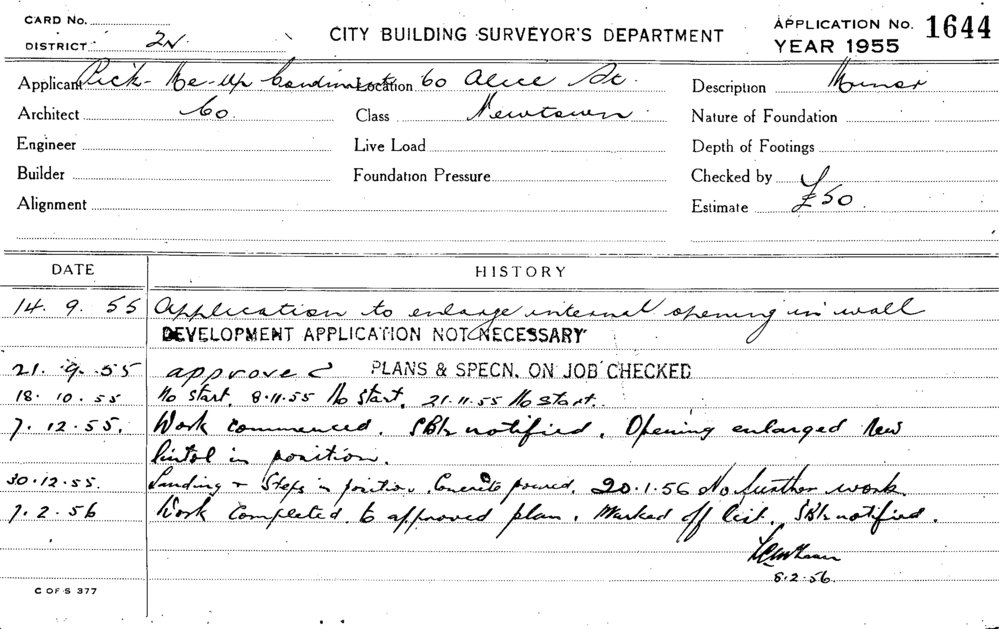 CARD No.
DISTRICT 2N.
CITY BUILDING SURVEYOR'S DEPARTMENT
APPLICATION No. 1644
YEAR 1955
Applicant Pick-Me-Up Condiment Location 60 Alice St.
Description Minor
Architect Co Class Newtown
Nature of Foundation
Engineer Live Load Depth of Footings
Builder Foundation Pressure Checked by
Alignment Estimate £50
DATE HISTORY
14. 9. 55 Application to enlarge internal opening in wall
DEVELOPMENT APPLICATION NOT NECESSARY
21. 9. 55 approved PLANS & SPECN. ON JOB CHECKED
18. 10. 55 No start. 8.11.55 No Start. 21.11.55 No start.
7. 12. 55. Work commenced. notified. Opening enlarged New
lintol in position.
30.12.55. Landing & Steps in position. Concrete poured. 20.1.56 No further work.
7. 2. 56 Work Completed to approved plan. Marked off list. notified.
8.2.56.
C OF S 377